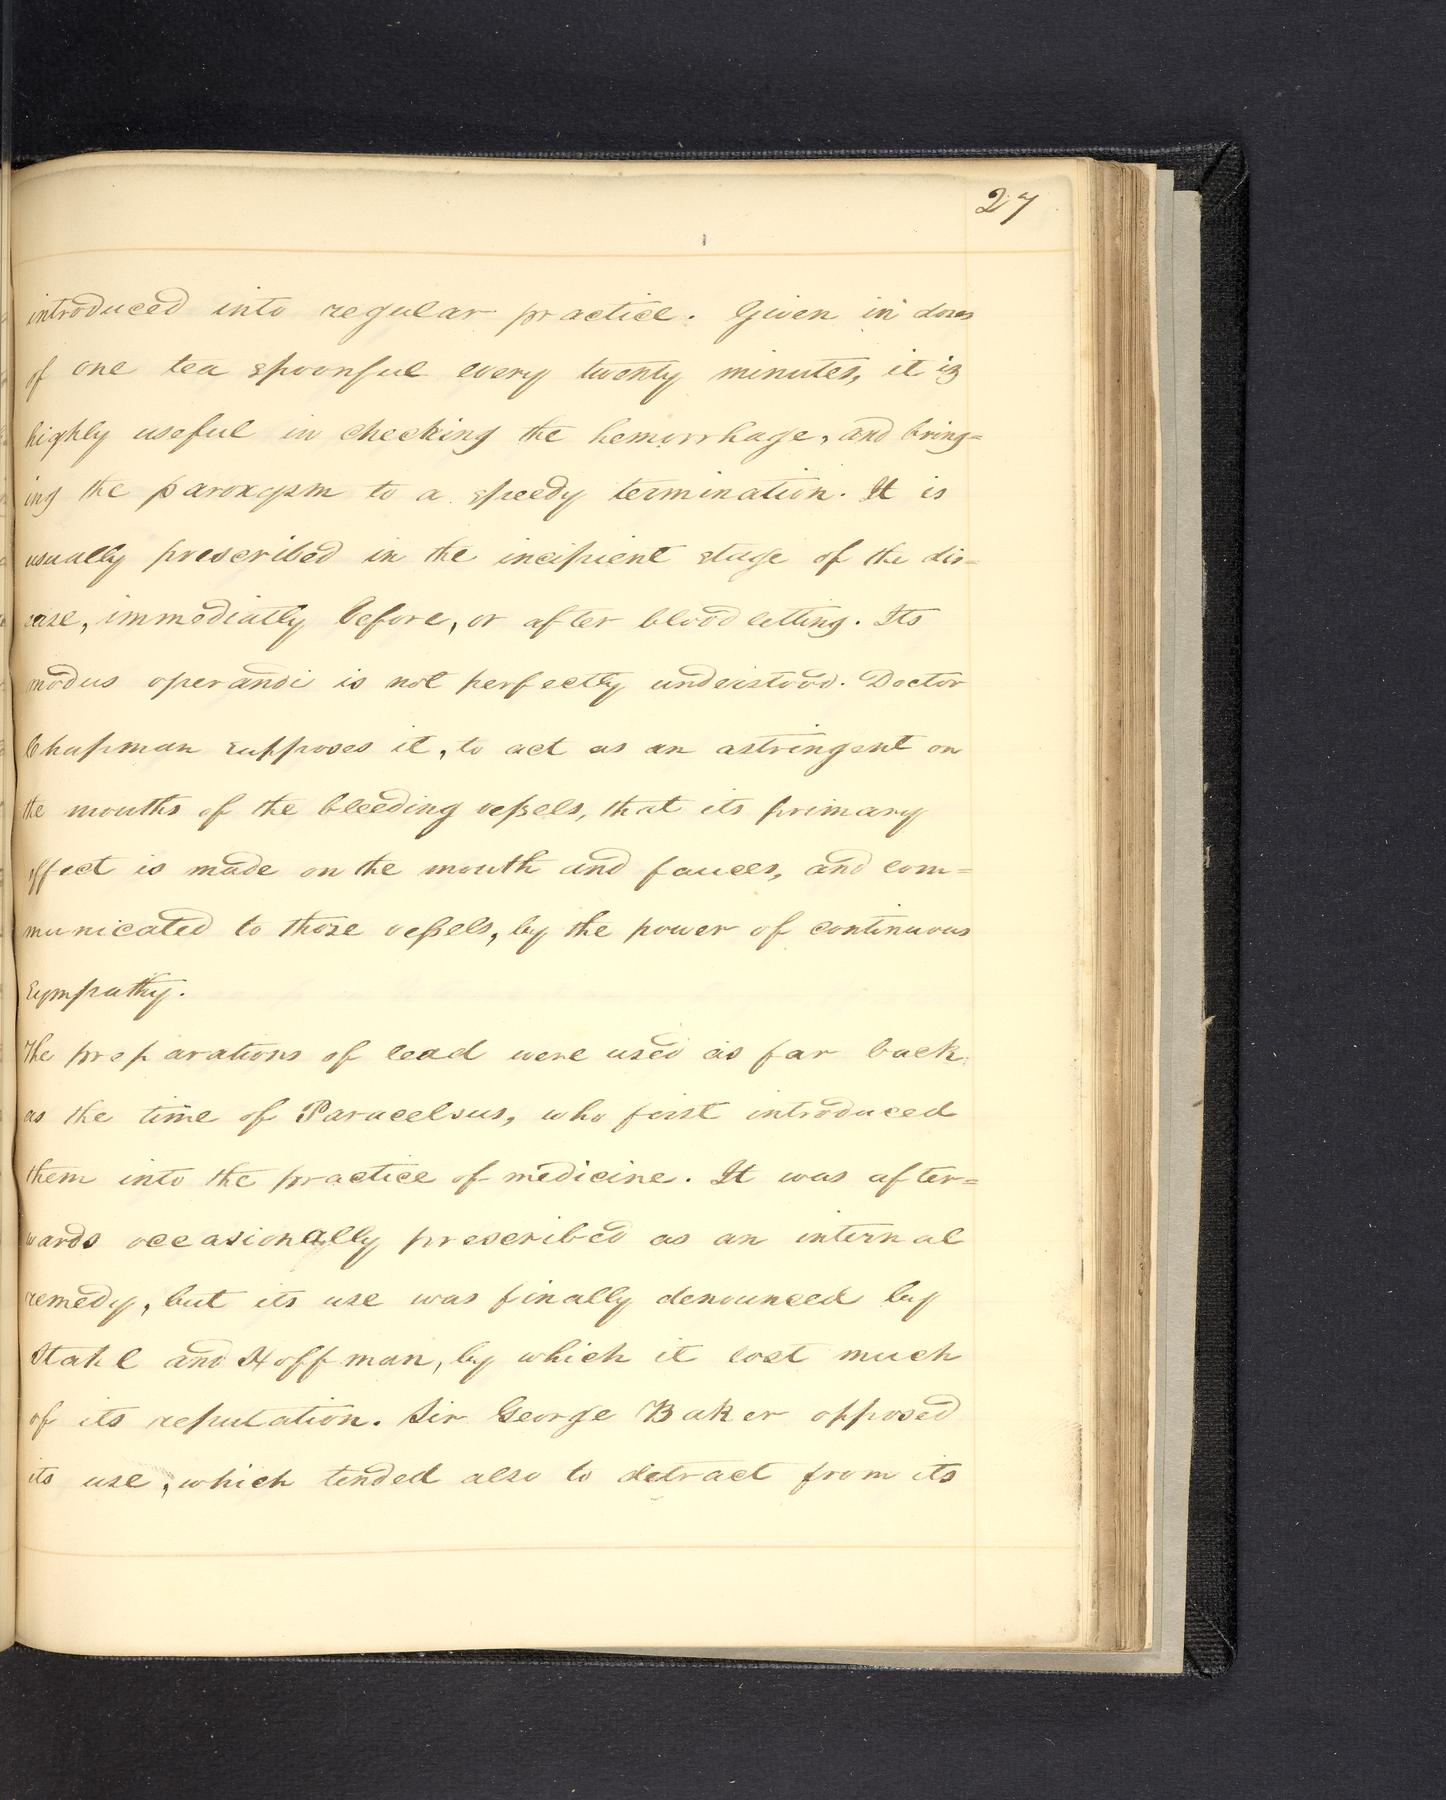 27
introduced into regular practice. Given in doses
of one tea spoonful every twenty minutes, it is
highly useful in checking the hemorrhage, and bring=
ing the paroxysm to a speedy termination. It is
usually prescribed in the incipient stage of the dis=
ease, immediatly before, or after blood letting. Its
modus operandi is not perfectly understood. Doctor
Chapman supposes it, to act as an astringent on
the mouths of the bleeding veßels, that its primary
effect is made on the mouth and fauces, and com=
municated to those veßels, by the power of continuous
sympathy.
The preparations of lead were used as far back
as the time of Paracelsus, who first introduced
them into the practice of medicine. It was after=
wards occasionally prescribed as an internal
remedy, but its use was finally denounced by
Stahl and Hoffman, by which it lost much
of its reputation. Sir George Baker opposed
its use, which tended also to detract from its